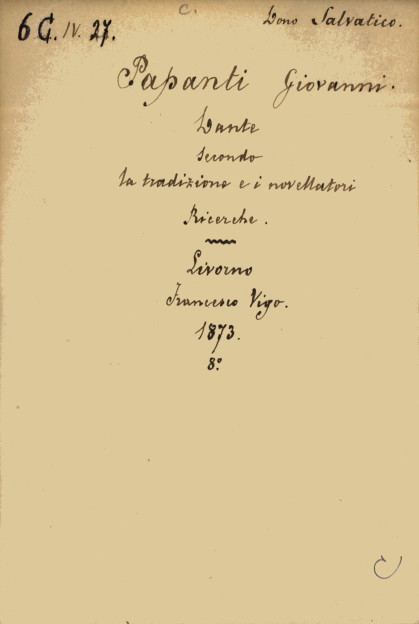 C.
Dono Salvatico.
6 G. IV. 27.
Papanti Giovanni.
Dante
secondo
la tradizione e i novellatori
Ricerche.
Livorno
Francesco Vigo.
1873.
8º